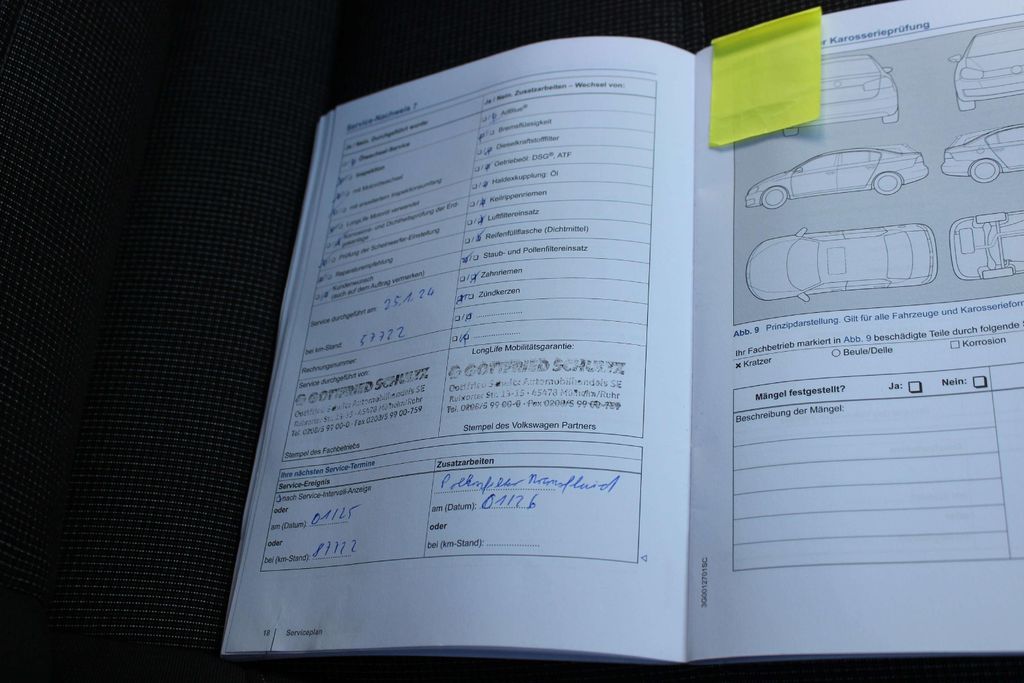 Service-Nachweis 7
Ja / Nein. Durchgeführt wurde:
Ölwechsel-Service
Inspektion
mit Motorölwechsel
mit erweitertem Inspektionsumfang
LongLife Motoröl verwendet
Korrosions- und Dichtheitsprüfung der Erd-
gasanlage
Prüfung der Scheinwerfer-Einstellung
Reparaturempfehlung
Kundenwunsch
(auch auf dem Auftrag vermerken)
Service durchgeführt am: 25.1.24
bei km-Stand: 57722
Rechnungsnummer:
Service durchgeführt von:
GOTTFRIED SCHULTZ
Gottfried Schultz Automobilhandels SE
Ruhrorter Str. 13-15 · 45478 Mülheim/Ruhr
Tel. 0208/5 99 00-0 · Fax 0208/5 99 00-759
Stempel des Fachbetriebs
Ja / Nein. Zusatzarbeiten – Wechsel von:
AdBlue®
Bremsflüssigkeit
Dieselkraftstofffilter
Getriebeöl: DSG®, ATF
Haldexkupplung: Öl
Keilrippenriemen
Luftfiltereinsatz
Reifenfüllflasche (Dichtmittel)
Staub- und Pollenfiltereinsatz
Zahnriemen
Zündkerzen
LongLife Mobilitätsgarantie:
GOTTFRIED SCHULTZ
Gottfried Schultz Automobilhandels SE
Ruhrorter Str. 13-15 · 45478 Mülheim/Ruhr
Tel. 0208/5 99 00-0 · Fax 0208/5 99 00-759
Stempel des Volkswagen Partners
Ihre nächsten Service-Termine
Service-Ereignis
nach Service-Intervall-Anzeige
oder
am (Datum): 01/25
oder
bei (km-Stand): 87722
Zusatzarbeiten
am (Datum): 01/26
oder
bei (km-Stand):
18 Serviceplan
r Karosserieprüfung
Abb. 9 Prinzipdarstellung. Gilt für alle Fahrzeuge und Karosseriefor
Ihr Fachbetrieb markiert in Abb. 9 beschädigte Teile durch folgende
× Kratzer
Beule/Delle
Korrosion
Mängel festgestellt? Ja: Nein:
Beschreibung der Mängel:
3G0012701SC